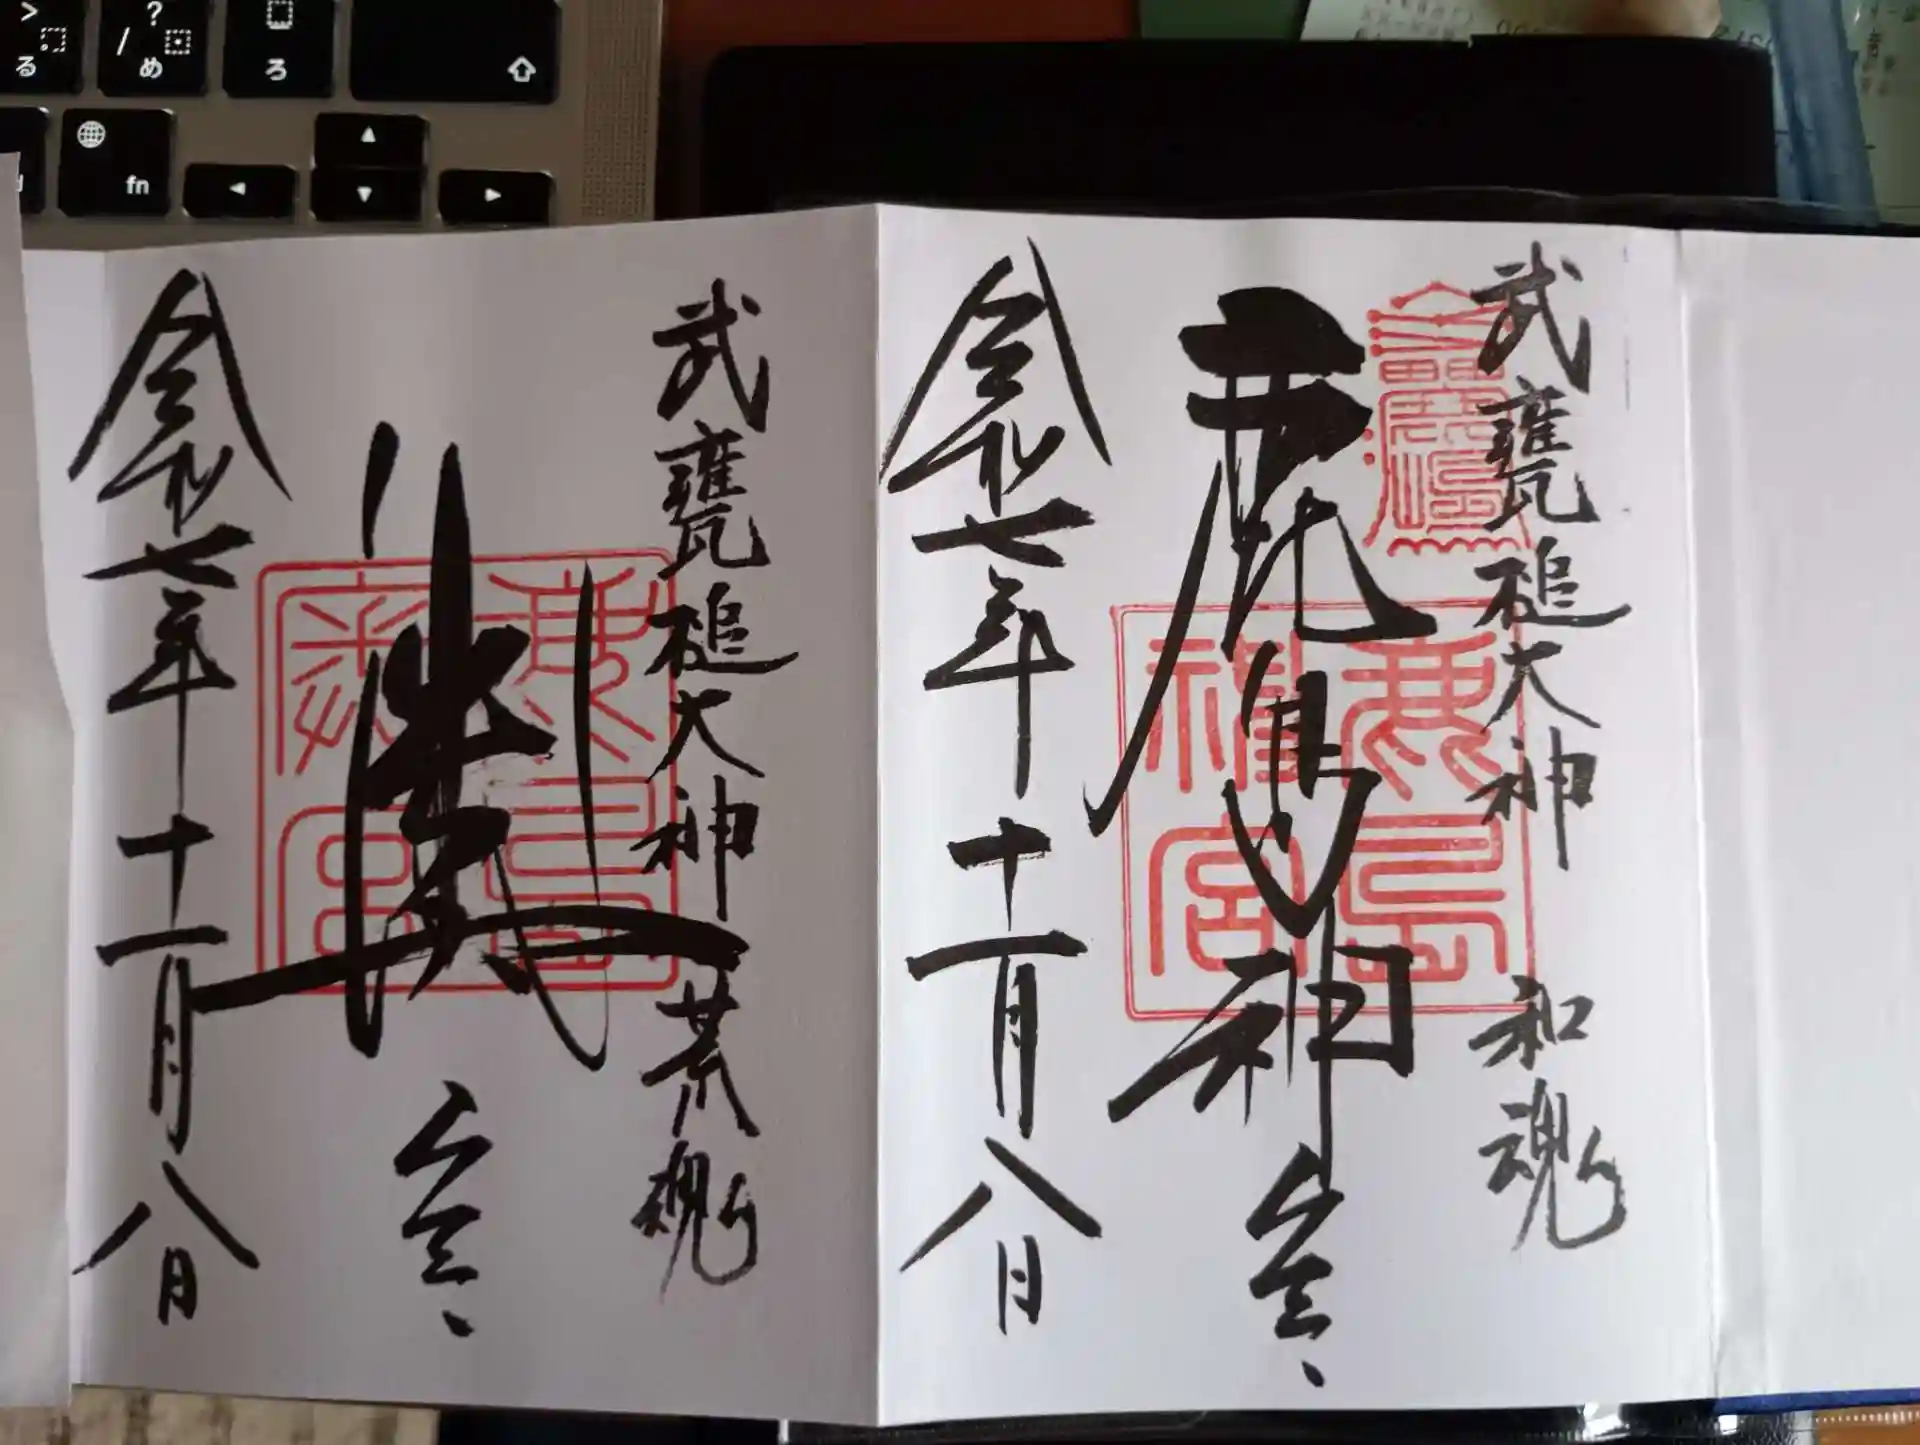 武甕槌大神 和魂
鹿島神宮
鹿島神宮
令和七年十一月八日
武甕槌大神 荒魂
奥宮
鹿島奥宮
令和七年十一月八日
>
。
る
?
/
・
め
ろ
fn